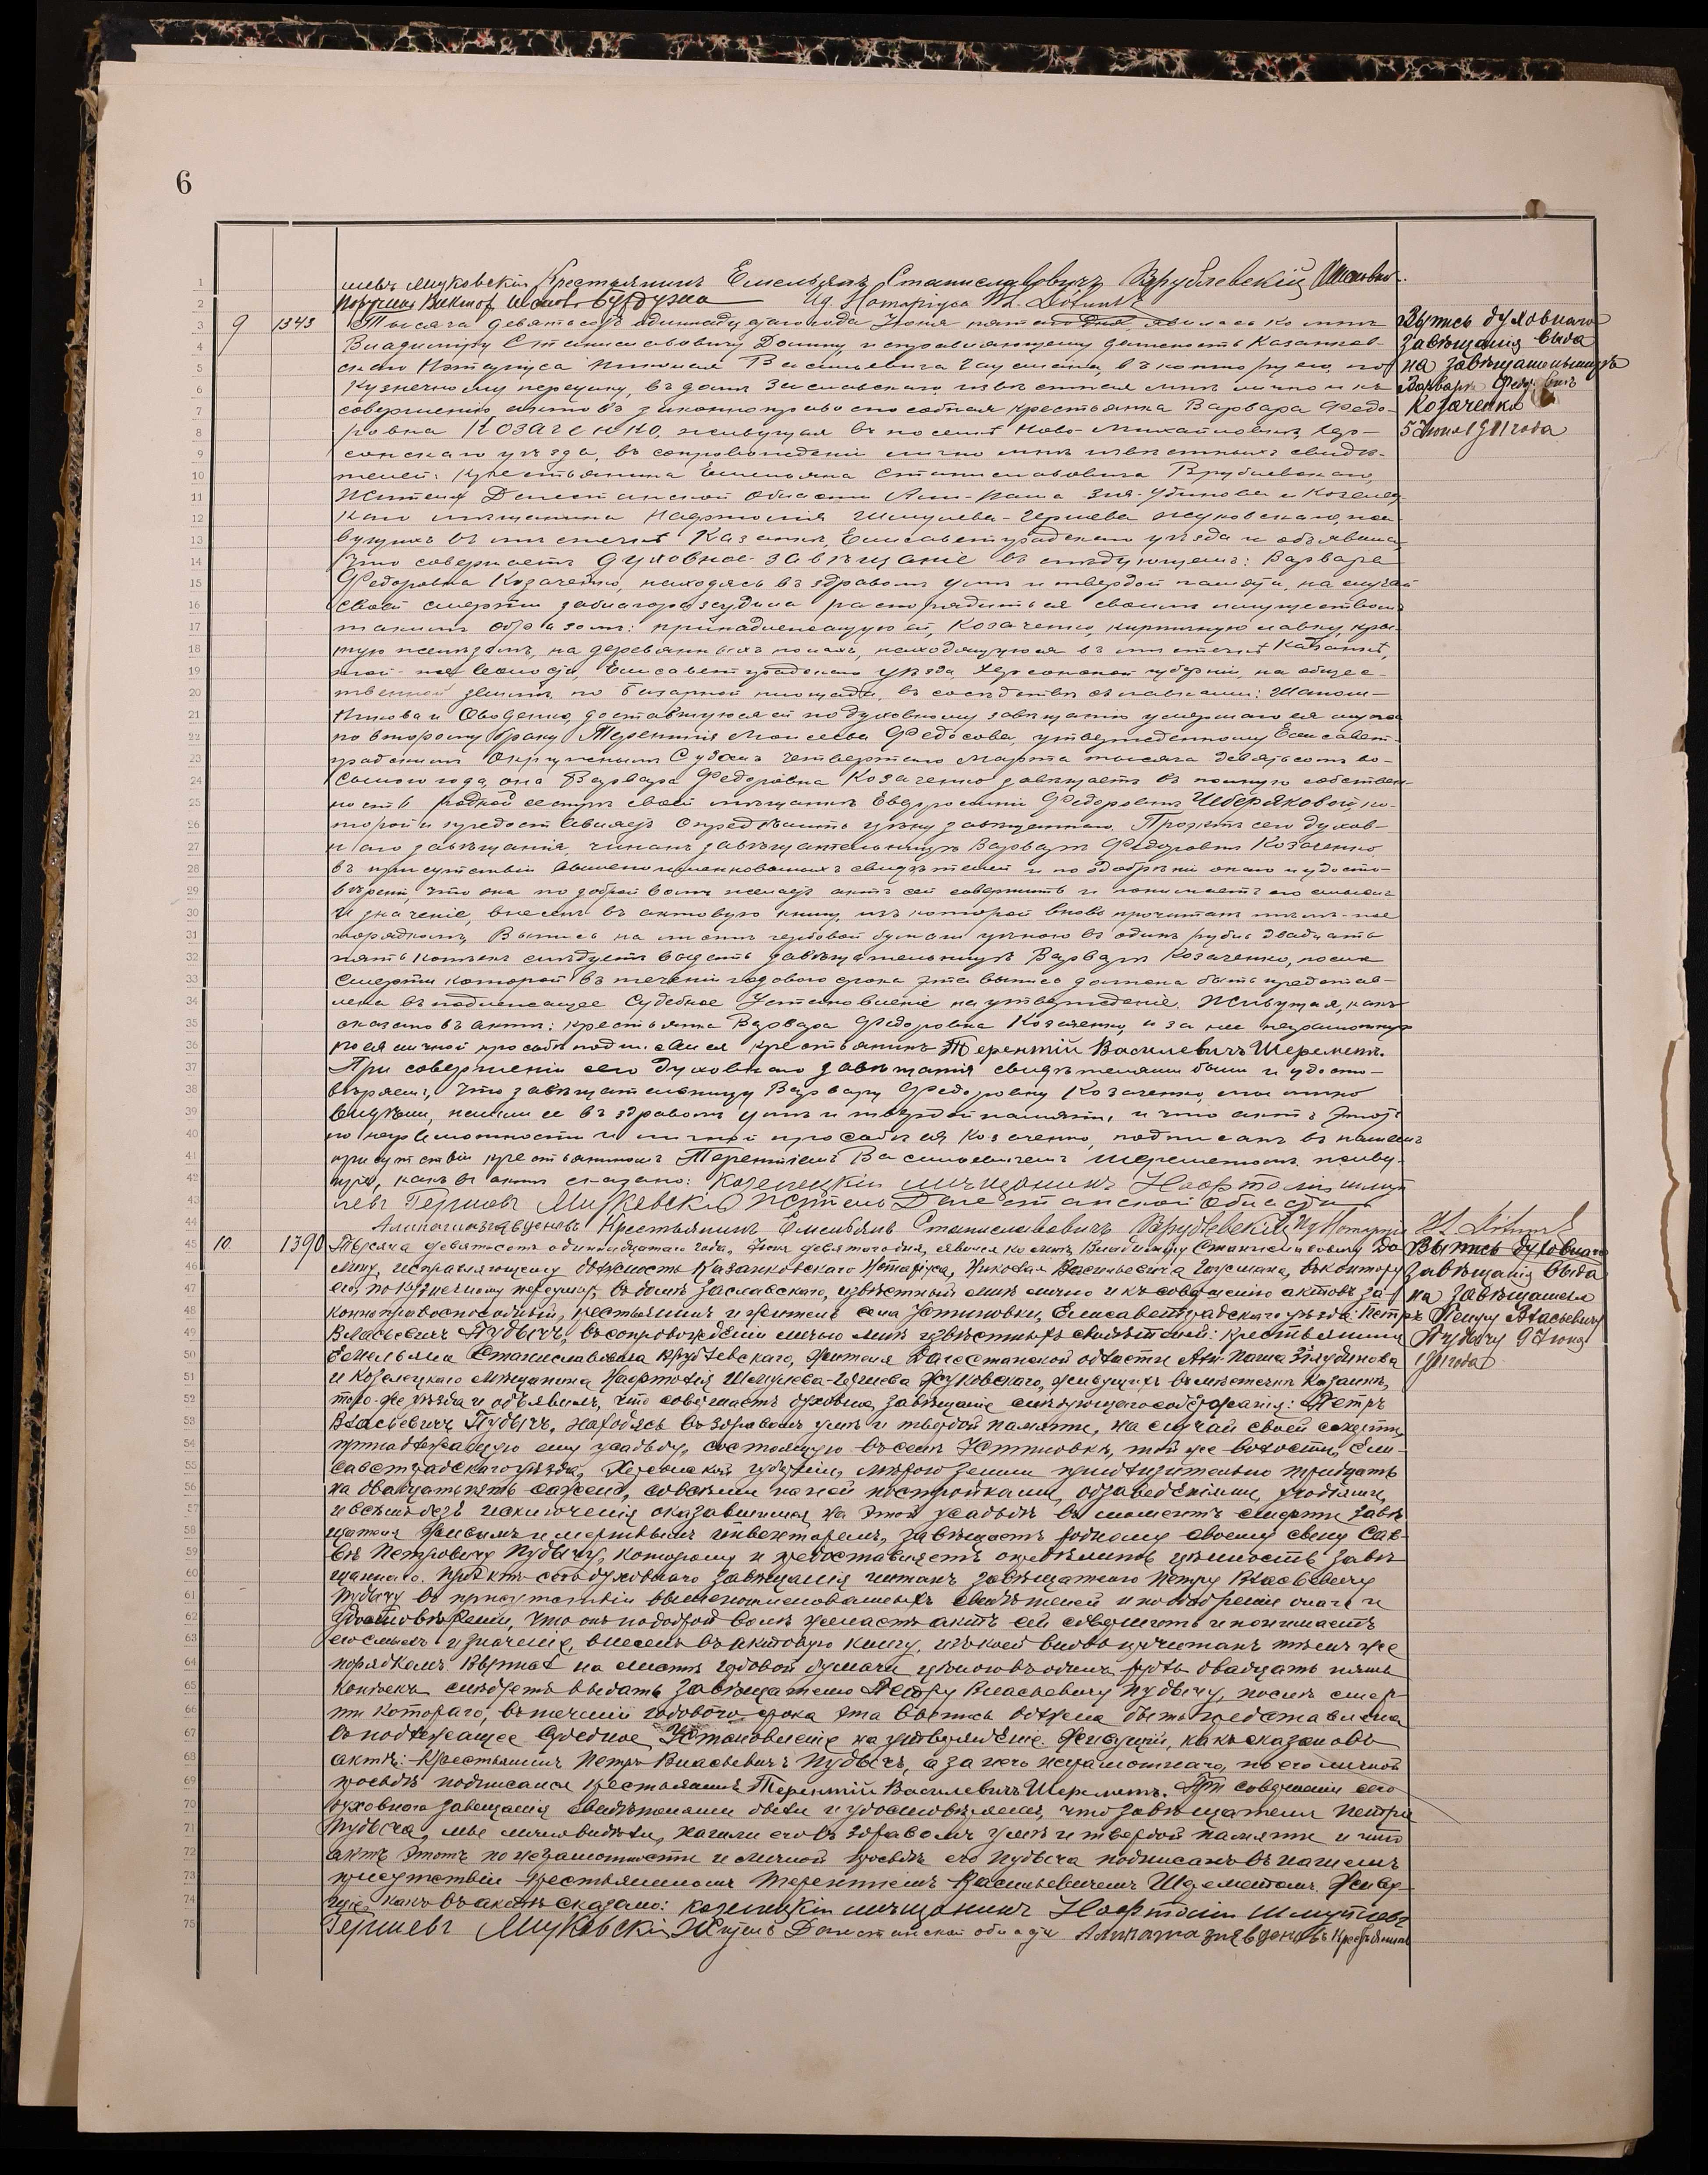 6
1 Крестьянинъ Емельянъ Станиславовичъ Врублевскій
2 Ид. Нотаріуса
3 9 1343 Тысяча девятьсотъ одиннадцатаго года Іюня пятаго дня, явилась ко мнѣ Выпись духовнаго
4 Владиміру Станиславовичу Долину, исправляющему должность Казанков- завѣщанія выда
5 скаго Нотаріуса Николая Васильевича Гаусмана, въ контору его, по на завѣщательницѣ
6 Кузнечному переулку, въ домѣ Заславскаго, извѣстная мнѣ лично и къ Варварѣ Федоровнѣ
7 совершенію актовъ законно правоспособная крестьянка Варвара Федо- Козаченко
8 ровна Козаченко, живущая въ поселкѣ Ново-Михайловкѣ, Хер- 5 Іюня 1911 года
9 сонскаго уѣзда, въ сопровожденіи лично мнѣ извѣстныхъ свидѣ-
10 телей: крестьянина Емельяна Станиславовича Врублевскаго,
11 Жителя Дагестанской Области Али-Паша и Козелец-
12 каго мѣщанина Нафтолія Шмулева-Гершева жи-
13 вущихъ въ мѣстечкѣ Казанкѣ, Елисаветградскаго уѣзда и объявила,
14 что совершаетъ духовное завѣщаніе въ слѣдующемъ: Варвара
15 Федоровна Козаченко, находясь въ здравомъ умѣ и твердой памяти, на случай
16 своей смерти заблагоразсудила распорядиться своимъ имуществомъ
17 такимъ образомъ: принадлежащую ей, Козаченко, кирпичную лавку, кры-
18 тую желѣзомъ, на деревянныхъ полахъ, находящуюся въ мѣстечкѣ Казанкѣ,
19 той-же волости, Елисаветградскаго уѣзда, Херсонской губерніи, на общес-
20 твенной землѣ, по Базарной площади, въ сосѣдствѣ съ лавками:
21 и доставшуюся ей по духовному завѣщанію умершаго ея мужа
22 по второму браку Терентія Моисеева Федосова, утвержденному Елисавет-
23 градскимъ Окружнымъ Судомъ четвертаго Марта тысяча девятьсотъ во-
24 сьмого года, она Варвара Федоровна Козаченко завѣщаетъ въ полную собствен-
25 ность родной сестрѣ своей мѣщанкѣ Евдросиніи Федоровнѣ Чеберяковой, ко-
26 торой и предоставляетъ опредѣлить цѣну завѣщаннаго. Проэктъ сего духов-
27 наго завѣщанія читанъ завѣщательницѣ Варварѣ Федоровнѣ Козаченко
28 въ присутствіи вышепоименованныхъ свидѣтелей и по одобреніи онаго и удосто-
29 вѣреніи, что она по доброй волѣ желаетъ актъ сей совершить и понимаетъ его смыслъ
30 и значеніе, внесенъ въ актовую книгу, изъ которой вновь прочитанъ тѣмъ-же
31 порядкомъ. Выпись на листѣ гербовой бумаги цѣною въ одинъ рубль двадцать
32 пять копѣекъ слѣдуетъ выдать завѣщательницѣ Варварѣ Козаченко, послѣ
33 смерти которой въ теченіи годового срока эта выпись должна быть представ-
34 лена въ подлежащее Судебное Установленіе на утвержденіе. Живущая, какъ
35 сказано въ актѣ: крестьянка Варвара Федоровна Козаченко, а за нее неграмотную
36 по ея личной просьбѣ подписался крестьянинъ Терентій Василевичъ Шереметъ.
37 При совершеніи сего духовнаго завѣщанія свидѣтелями были и удосто-
38 вѣряемъ, что завѣщательницу Варвару Федоровну Козаченко мы лично
39 видѣли, нашли ее въ здравомъ умѣ и твердой памяти, и что актъ этотъ
40 по неграмотности и личной просьбѣ ея Козаченко, подписанъ въ нашемъ
41 присутствіи крестьяниномъ Терентіемъ Васильевичемъ Шереметомъ. Живу-
42 щіе, какъ въ актѣ сказано: Козелецкій мѣщанинъ Нафтолій Шмул
43 евъ Гершевъ Житель Дагестанской Области
44 Крестьянинъ Емельянъ Станиславовичъ Врублевскій Ид Нотаріуса
45 10. 1390 Тысяча девятьсотъ одиннадцатаго года, Іюня девятаго дня, явился ко мнѣ Владиміру Станиславовичу До- Выпись духовнаго
46 лину, исправляющему должность Казанковскаго Нотаріуса, Николая Васильевича Гаусмана, въ контору завѣщанія выда
47 его, по Кузнечному переулку, въ домѣ Заславскаго, извѣстный мнѣ лично и къ совершенію актовъ за- на завѣщателю
48 конно правоспособный, крестьянинъ и житель села Устиновки, Елисаветградскаго уѣзда Петръ Петру Власьевичу
49 Власьевичъ Пудычъ, въ сопровожденіи лично мнѣ извѣстныхъ свидѣтелей: крестьянина Пудычу 9 Іюня
50 Емельяна Станиславовича Врублевскаго, жителя Дагестанской области Али-Паша 1911 года
51 и Козелецкаго мѣщанина Нафтолія Шмулева-Гершева живущихъ въ мѣстечкѣ Казанкѣ,
52 того-же уѣзда и объявилъ, что совершаетъ духовное завѣщаніе слѣдующаго содержанія: Петръ
53 Власьевичъ Пудычъ, находясь въ здравомъ умѣ и твердой памяти, на случай своей смерти,
54 принадлежащую ему усадьбу, состоящую въ селѣ Устиновкѣ, той же волости, Ели-
55 саветградскаго уѣзда, Херсонской губерніи, мѣрою земли приблизительно тридцать
56 на двадцать пять сажень, со всѣми на ней постройками, обзаведеніями, угодіями,
57 и всѣмъ безъ исключенія оказавшимся на этой усадьбѣ въ моментъ смерти завѣ
58 щателя живымъ и мертвымъ инвентаремъ, завѣщаетъ родному своему сыну Сав-
59 вѣ Петровичу Пудычу, которому и предоставляетъ опредѣлить цѣнность завѣ
60 щаннаго. Проэктъ сего духовнаго завѣщанія читанъ завѣщателю Петру Власьевичу
61 Пудычу въ присутствіи вышепоименованныхъ свидѣтелей и по одобреніи онаго и
62 удостовѣреніи, что онъ по доброй волѣ желаетъ актъ сей совершить и понимаетъ
63 его смыслъ и значеніе, внесенъ въ актовую книгу, изъ коей вновь прочитанъ тѣмъ же
64 порядкомъ. Выпись на листѣ гербовой бумаги цѣною въ одинъ рубль двадцать пять
65 копѣекъ слѣдуетъ выдать завѣщателю Петру Власьевичу Пудычу, послѣ смер-
66 ти котораго, въ теченіи годового срока эта выпись должна быть представлена
67 въ подлежащее Судебное Установленіе на утвержденіе. Живущій, какъ сказано въ
68 актѣ: Крестьянинъ Петръ Власьевичъ Пудычъ, а за него неграмотнаго, по его личной
69 просьбѣ подписался крестьянинъ Терентій Василевичъ Шереметъ. При совершеніи сего
70 духовнаго завещанія свидѣтелями были и удостовѣряемъ, что завѣщателя Петра
71 Пудыча, мы лично видѣли, нашли его въ здравомъ умѣ и твердой памяти и что
72 актъ этотъ по неграмотности и личной просьбѣ его Пудыча подписанъ въ нашемъ
73 присутствіи крестьяниномъ Терентіемъ Васильевичемъ Шереметомъ. Живу-
74 щіе, какъ въ актѣ сказано: Козелецкій мѣщанинъ Нафтолій Шмулевъ
75 Гершевъ Житель Дагестанской области Крестьянинъ